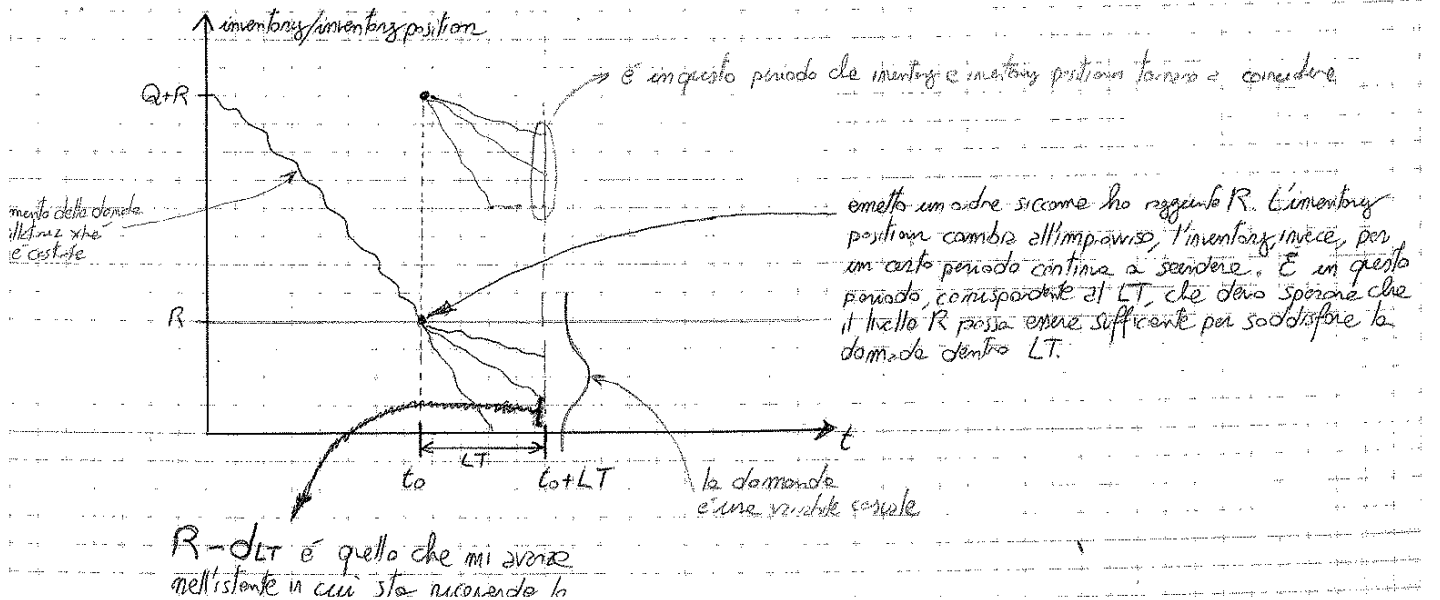 inventory/inventory position
é in questo periodo che inventory e inventory position tornano a coincidere
Q+R
mento della domanda
xhé
é costante
emetto un ordine siccome ho raggiunto R. L'inventory
position cambia all'improvviso, l'inventory invece, per
un certo periodo continua a scendere. É in questo
periodo, corrispondente al LT, che devo sperare che
il livello R possa essere sufficente per soddisfare la
domanda dentro LT.
R
t
LT
to
to+LT
la domanda
é una variabile casuale
R-dLT é quello che mi avanza
nell'istante in cui sto ricevendo lo